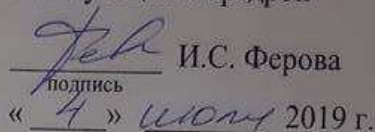 И.С. Ферова
подпись
« 4 » июля 2019 г.